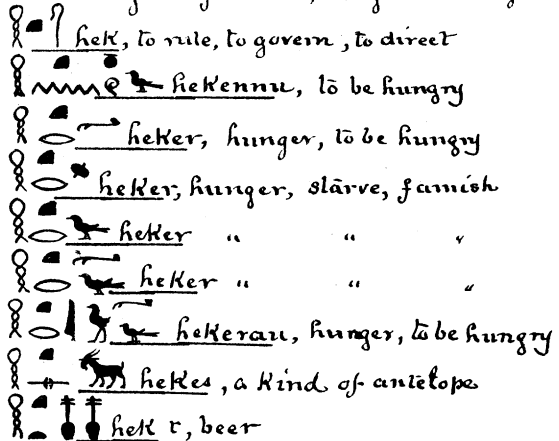 hek, to rule, to govern, to direct
hekennu, to be hungry
heker, hunger, to be hungry
heker, hunger, starve, famish
heker " " "
heker " " "
hekerau, hunger, to be hungry
hekes, a kind of antelope
hek t, beer